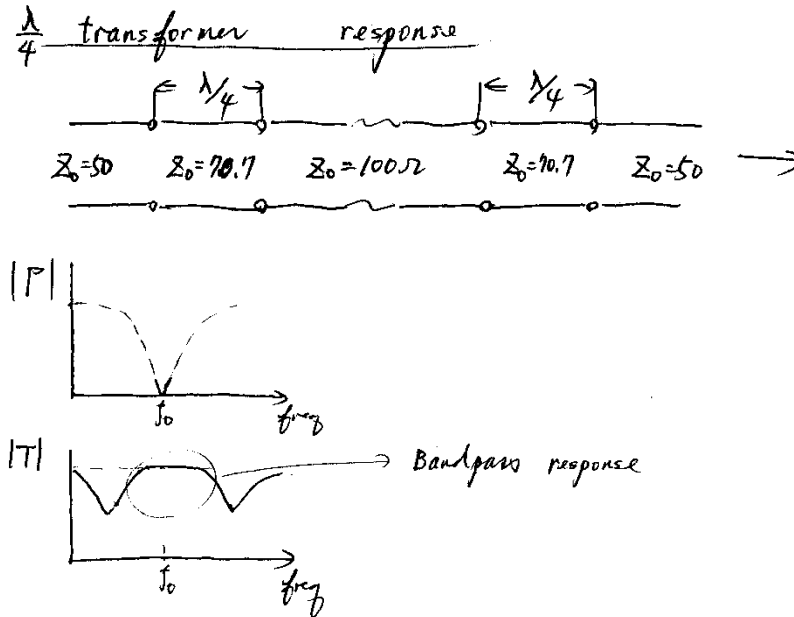 λ/4 transformer response
λ/4 λ/4
Z₀=50 Z₀=70.7 Z₀=100Ω Z₀=70.7 Z₀=50
|Γ|
f₀ freq
|T| Bandpass response
f₀ freq